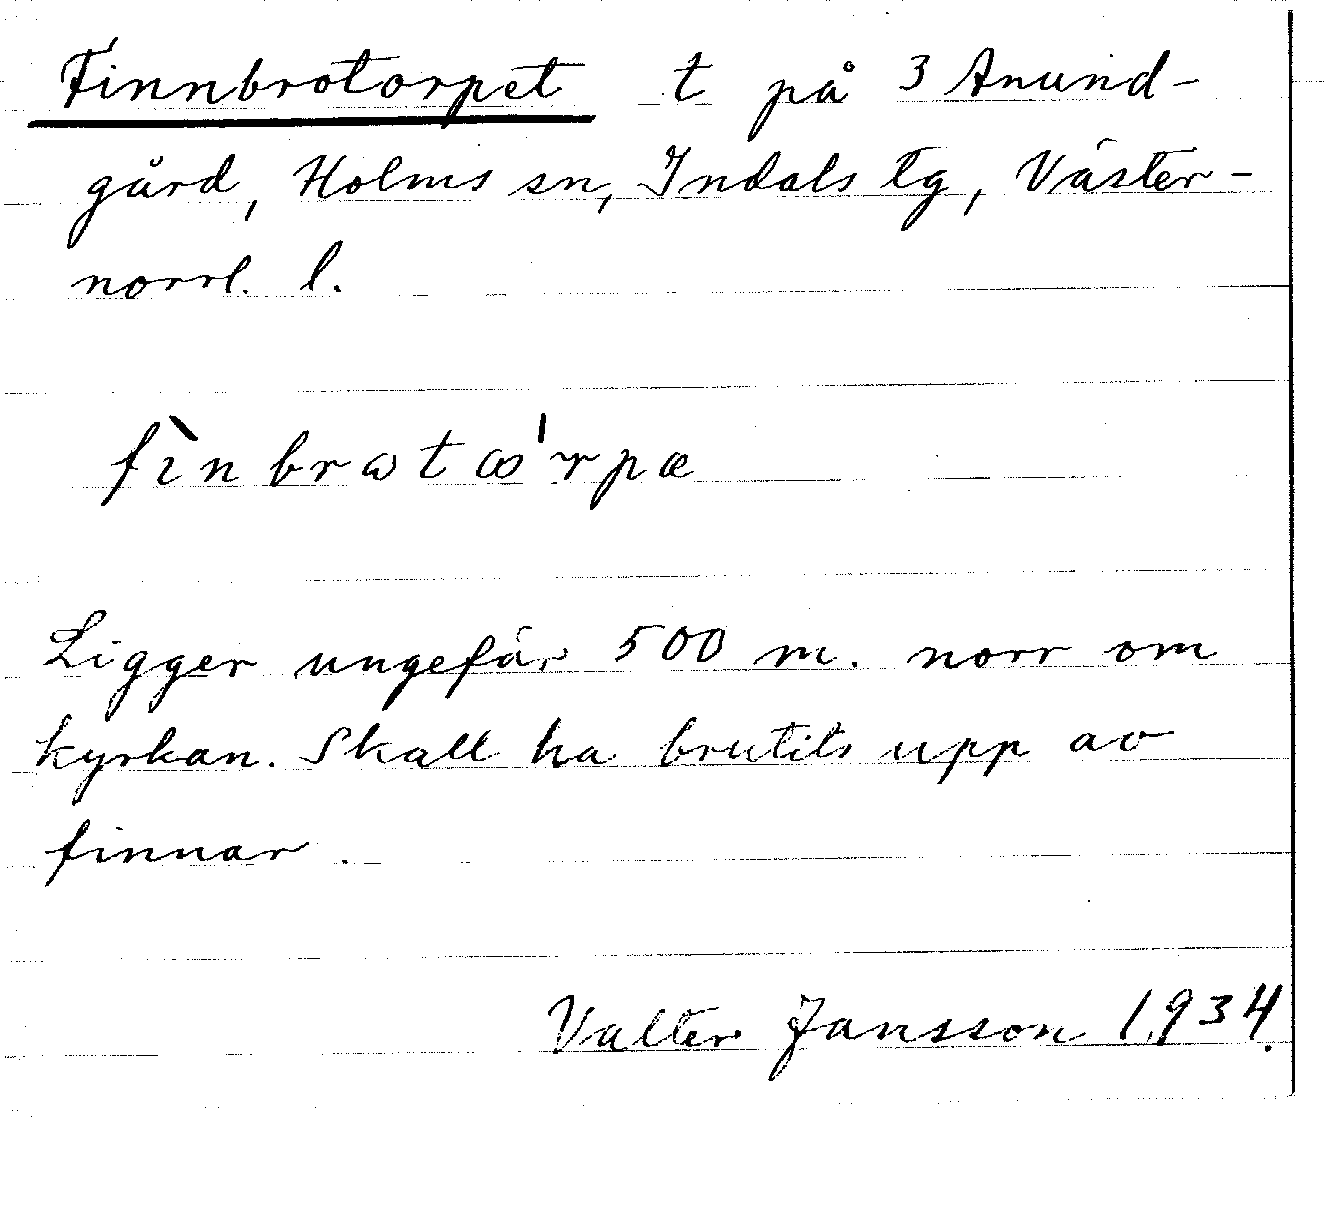 Finnbrotorpet t på 3 Anund-
gård, Holms sn, Indals tg, Väster-
norrl. l.
fìnbrωtꝏ'rpæ
Ligger ungefär 500 m. norr om
kyrkan. Skall ha brutits upp av
finnar.
Valter Jansson 1934.